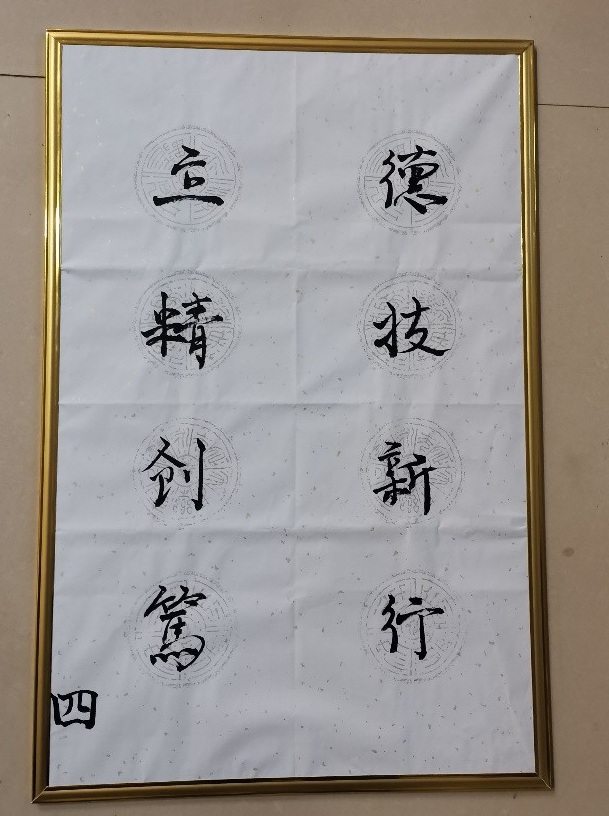 立德
精技
創新
篤行
四